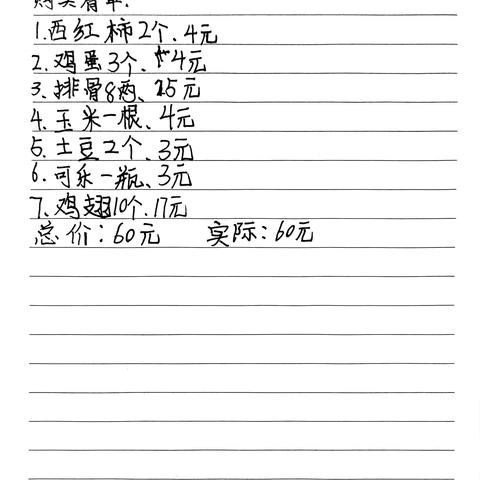 购买清单:
1.西红柿2个、4元
2.鸡蛋3个、4元
3.排骨8两、25元
4.玉米一根、4元
5.土豆2个、3元
6.可乐一瓶、3元
7.鸡翅10个、17元
总价:60元 实际:60元